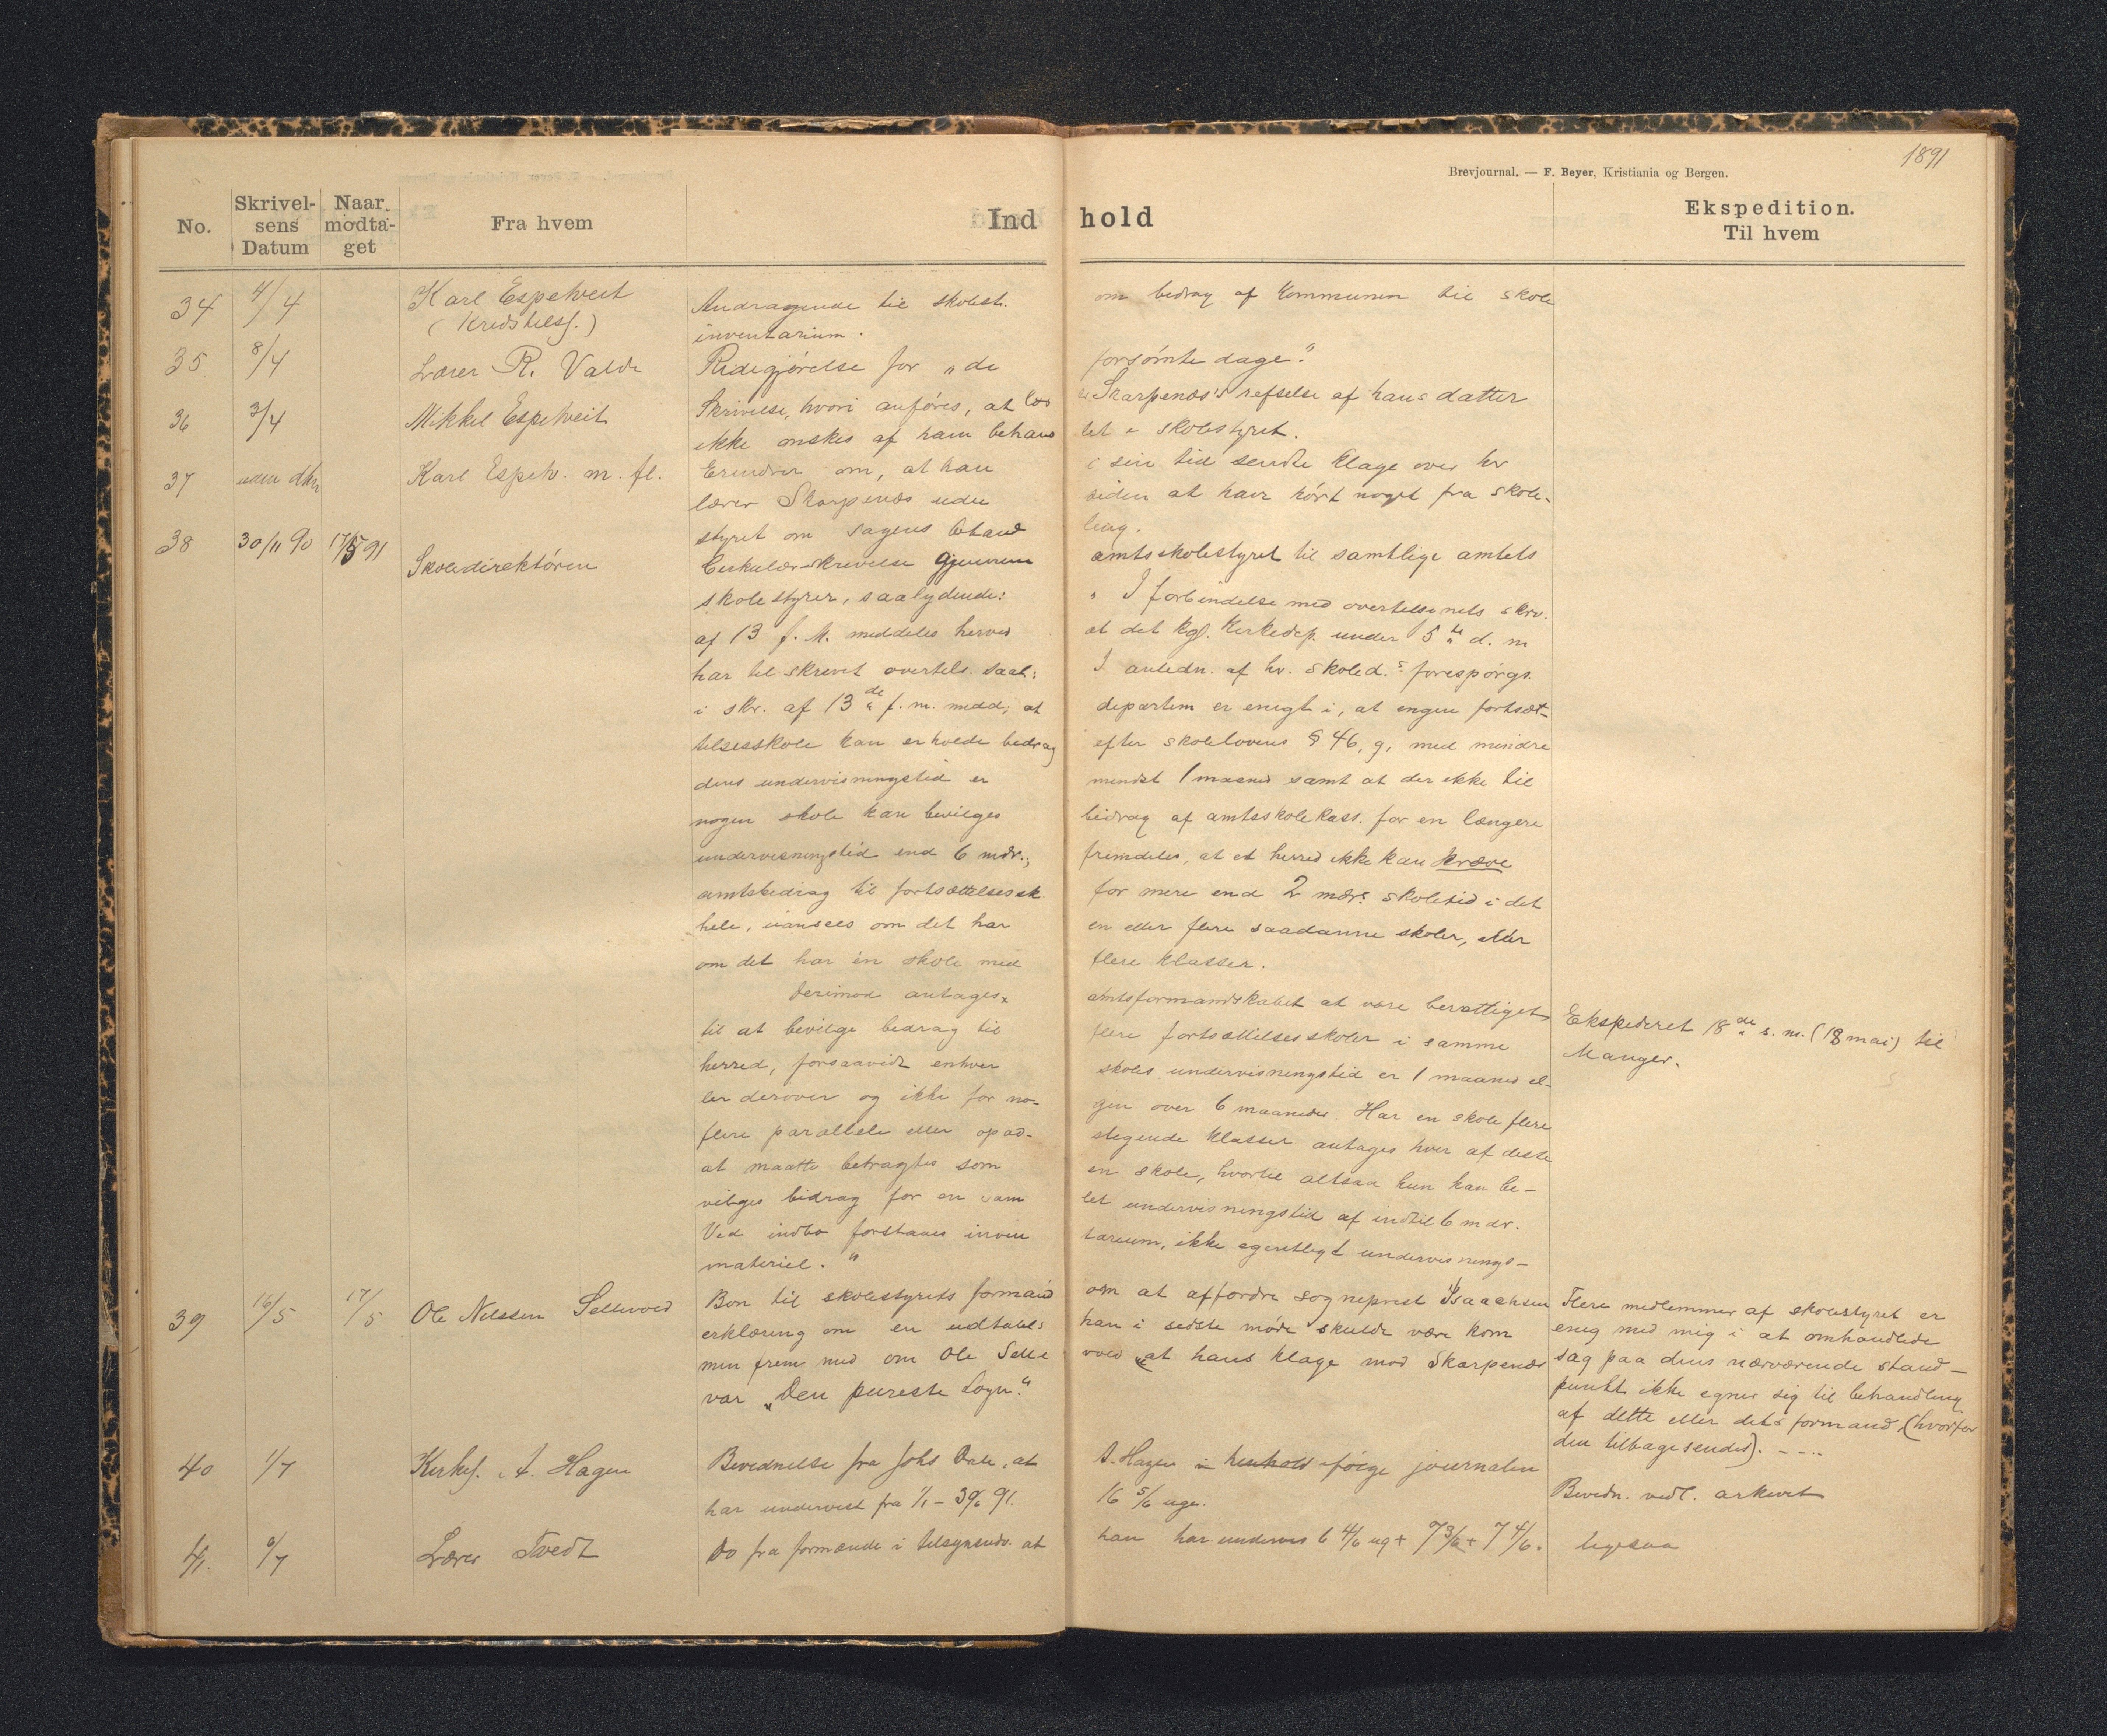 1891
Brevjournal. — F. Beyer, Kristiania og Bergen.
No.
Skrivel-
sens
Datum
Naar
modta-
get
Fra hvem
Ind hold
Ekspedition.
Til hvem
34 4/4 Karl Espetveit Andragende til skolest. om bidrag af kommunen til skole
(Kredstilsf.) inventarium.
35 8/4 Lærer R. Valde Redegjørelse for „de forsømte dage".
36 3/4 Mikkel Espetveit Skrivelse, hvori anføres, at Skarpenæs's refselse af hans datter
ikke ønskes af ham behand let i skolestyret.
37 uden dtm Karl Espetv. m. fl. Erindrer om, at han i sin tid sendte klage over hr
lærer Skarpenæs uden siden at have hørt noget fra skole-
styret om sagens behand ling.
38 30/11 90 17/5 91 Skoledirektøren Cirkulær-skrivelse gjennem amtsskolestyret til samtlige amtets
skolestyrer, saalydende: „ I forbindelse med overtilsynets skriv.
af 13 f. M. meddeles herved at det kgl. Kirkedep. under 5te d. m
har tilskrevet overtils. saal: I anledn. af hr. skoled.s forespørgs.
i skr. af 13de f. m. medd, at departem er enigt i, at ingen fortsæt-
telsesskole kan erholde bidrag efter skolelovens § 46, g, med mindre
dens undervisningstid er mindst 1 maaned samt at der ikke til
nogen skole kan bevilges bidrag af amtsskolekass. for en længere
undervisningstid end 6 mdr.; fremdeles, at et herred ikke kan kræve
amtsbidrag til fortsættelsessk. for mere end 2 mdr.s skoletid i det
hele, uansees om det har en eller flere saadanne skoler, eller
om det har én skole med flere klasser.
Derimod antages amtsformandskabet at være berettiget
til at bevilge bidrag til flere fortsættelsesskoler i samme
herred, forsaavidt enhver skoles undervisningstid er 1 maaned el-
ler derover og ikke for no- gen over 6 maaneder. Har en skole flere
flere parallele eller opad- stigende klasser antages hver af disse
at maatte betragtes som en skole, hvortil altsaa kun kan be-
vilges bidrag for en sam let undervisningstid af indtil 6 mdr.
Ved indbo forstaaes inven tarium, ikke egentligt undervisnings-
materiel. "
Ekspederet 18de s. m. (18 mai) til
Manger.
39 16/5 17/5 Ole Nilssen Sellevold Bøn til skolestyrets formand om at affordre sogneprest Isaachsen
erklæring om en udtalel: han i sidste møde skulde være kom
men frem med om Ole Selle vold, at hans klage mod Skarpenæs
var „Den pureste Løgn."
Flere medlemmer af skolestyret er
enig med mig i at omhandlede
sag paa dens nærværende stand-
punkt ikke egner sig til behandling
af dette eller dets formand, (hvorfor
den tilbagesendes). - - - -
40 1/7 Kirkes. A. Hagen Bevidnelse fra Johs Dale, at A. Hagen i henhold ifølge journalen
har undervist fra 1/1 - 30/6 91. 16 5/6 uge.
Bevidn. vedl. arkivet
41. 6/7 Lærer Tvedt Do fra formænde i tilsynsudv. at han har undervis 6 4/6 ug + 7 3/6 + 7 4/6.
ligesaa